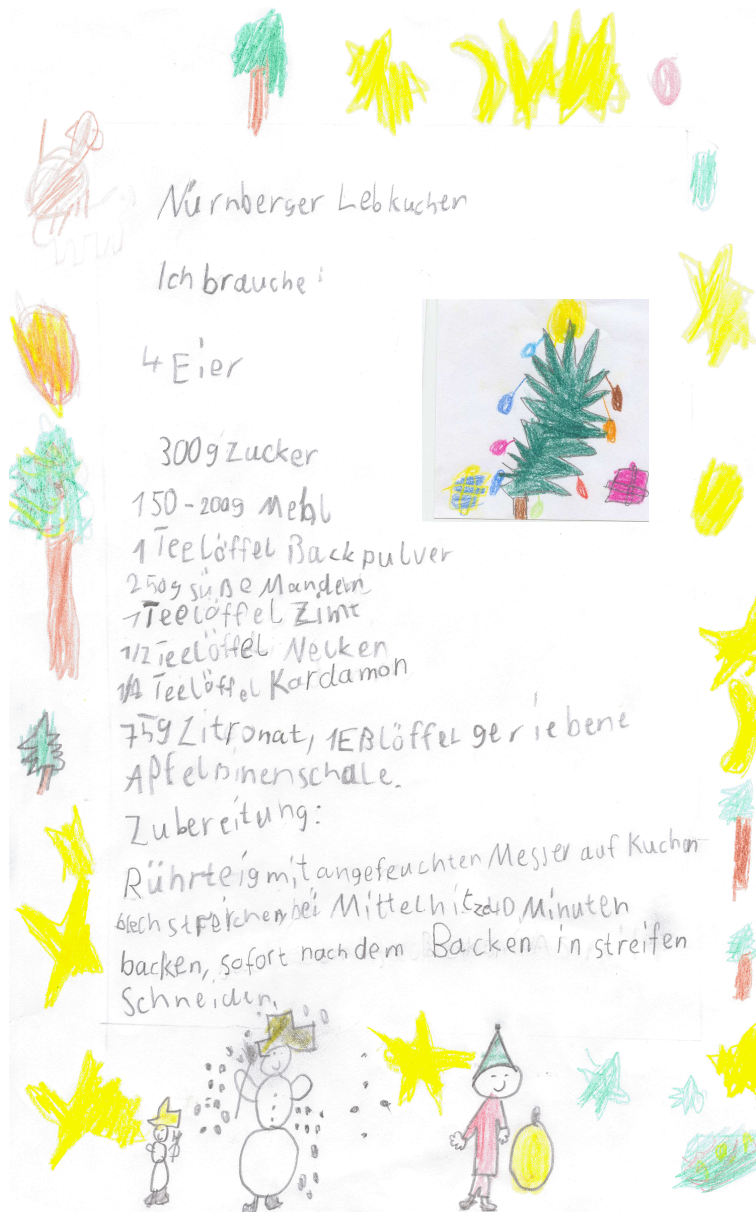 Nürnberger Lebkuchen
Ich brauche:
4 Eier
300g Zucker
150-200g Mehl
1 Teelöffel Backpulver
250g süße Mandeln
1 Teelöffel Zimt
1/2 Teelöffel Nelken
1/4 Teelöffel Kardamon
75g Zitronat, 1EBlöffel geriebene
Apfelsinenschale.
Zubereitung:
Rührteig mit angefeuchten Messer auf Kuchen
blech streichen, bei Mittelhitze 40 Minuten
backen, sofort nach dem Backen in streifen
Schneiden.